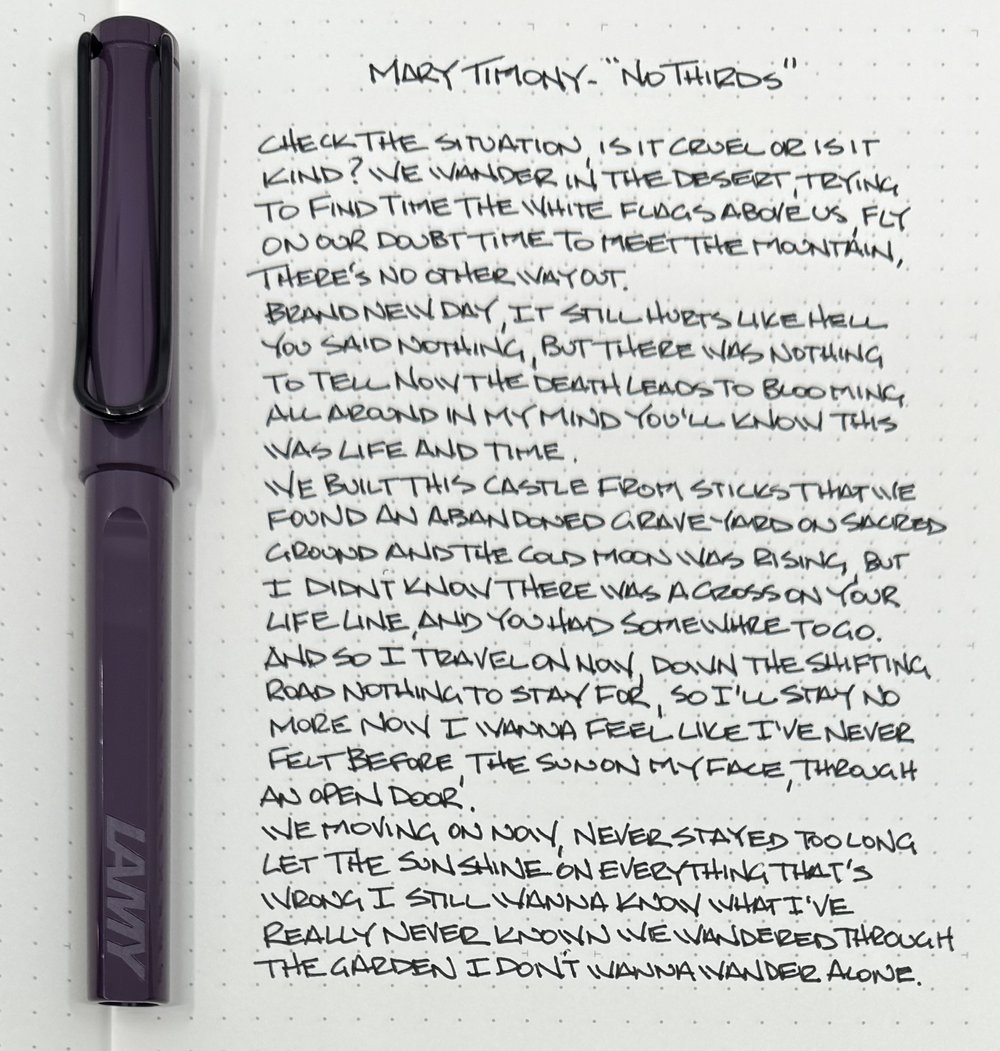 MARY TIMONY - "NO THIRDS"
CHECK THE SITUATION, IS IT CRUEL OR IS IT
KIND? WE WANDER IN THE DESERT, TRYING
TO FIND TIME THE WHITE FLAGS ABOVE US, FLY
ON OUR DOUBT TIME TO MEET THE MOUNTAIN,
THERE'S NO OTHER WAY OUT.
BRAND NEW DAY, IT STILL HURTS LIKE HELL
YOU SAID NOTHING, BUT THERE WAS NOTHING
TO TELL NOW THE DEATH LEADS TO BLOOMING
ALL AROUND IN MY MIND YOU'LL KNOW THIS
WAS LIFE AND TIME.
WE BUILT THIS CASTLE FROM STICKS THAT WE
FOUND AN ABANDONED GRAVE-YARD ON SACRED
GROUND AND THE COLD MOON WAS RISING, BUT
I DIDN'T KNOW THERE WAS A CROSS ON YOUR
LIFE LINE, AND YOU HAD SOMEWHRE TO GO.
AND SO I TRAVEL ON NOW, DOWN THE SHIFTING
ROAD NOTHING TO STAY FOR, SO I'LL STAY NO
MORE NOW I WANNA FEEL LIKE I'VE NEVER
FELT BEFORE, THE SUN ON MY FACE, THROUGH
AN OPEN DOOR.
WE MOVING ON NOW, NEVER STAYED TOO LONG
LET THE SUN SHINE ON EVERYTHING THAT'S
WRONG I STILL WANNA KNOW WHAT I'VE
REALLY NEVER KNOWN WE WANDERED THROUGH
THE GARDEN I DON'T WANNA WANDER ALONE.
LAMY